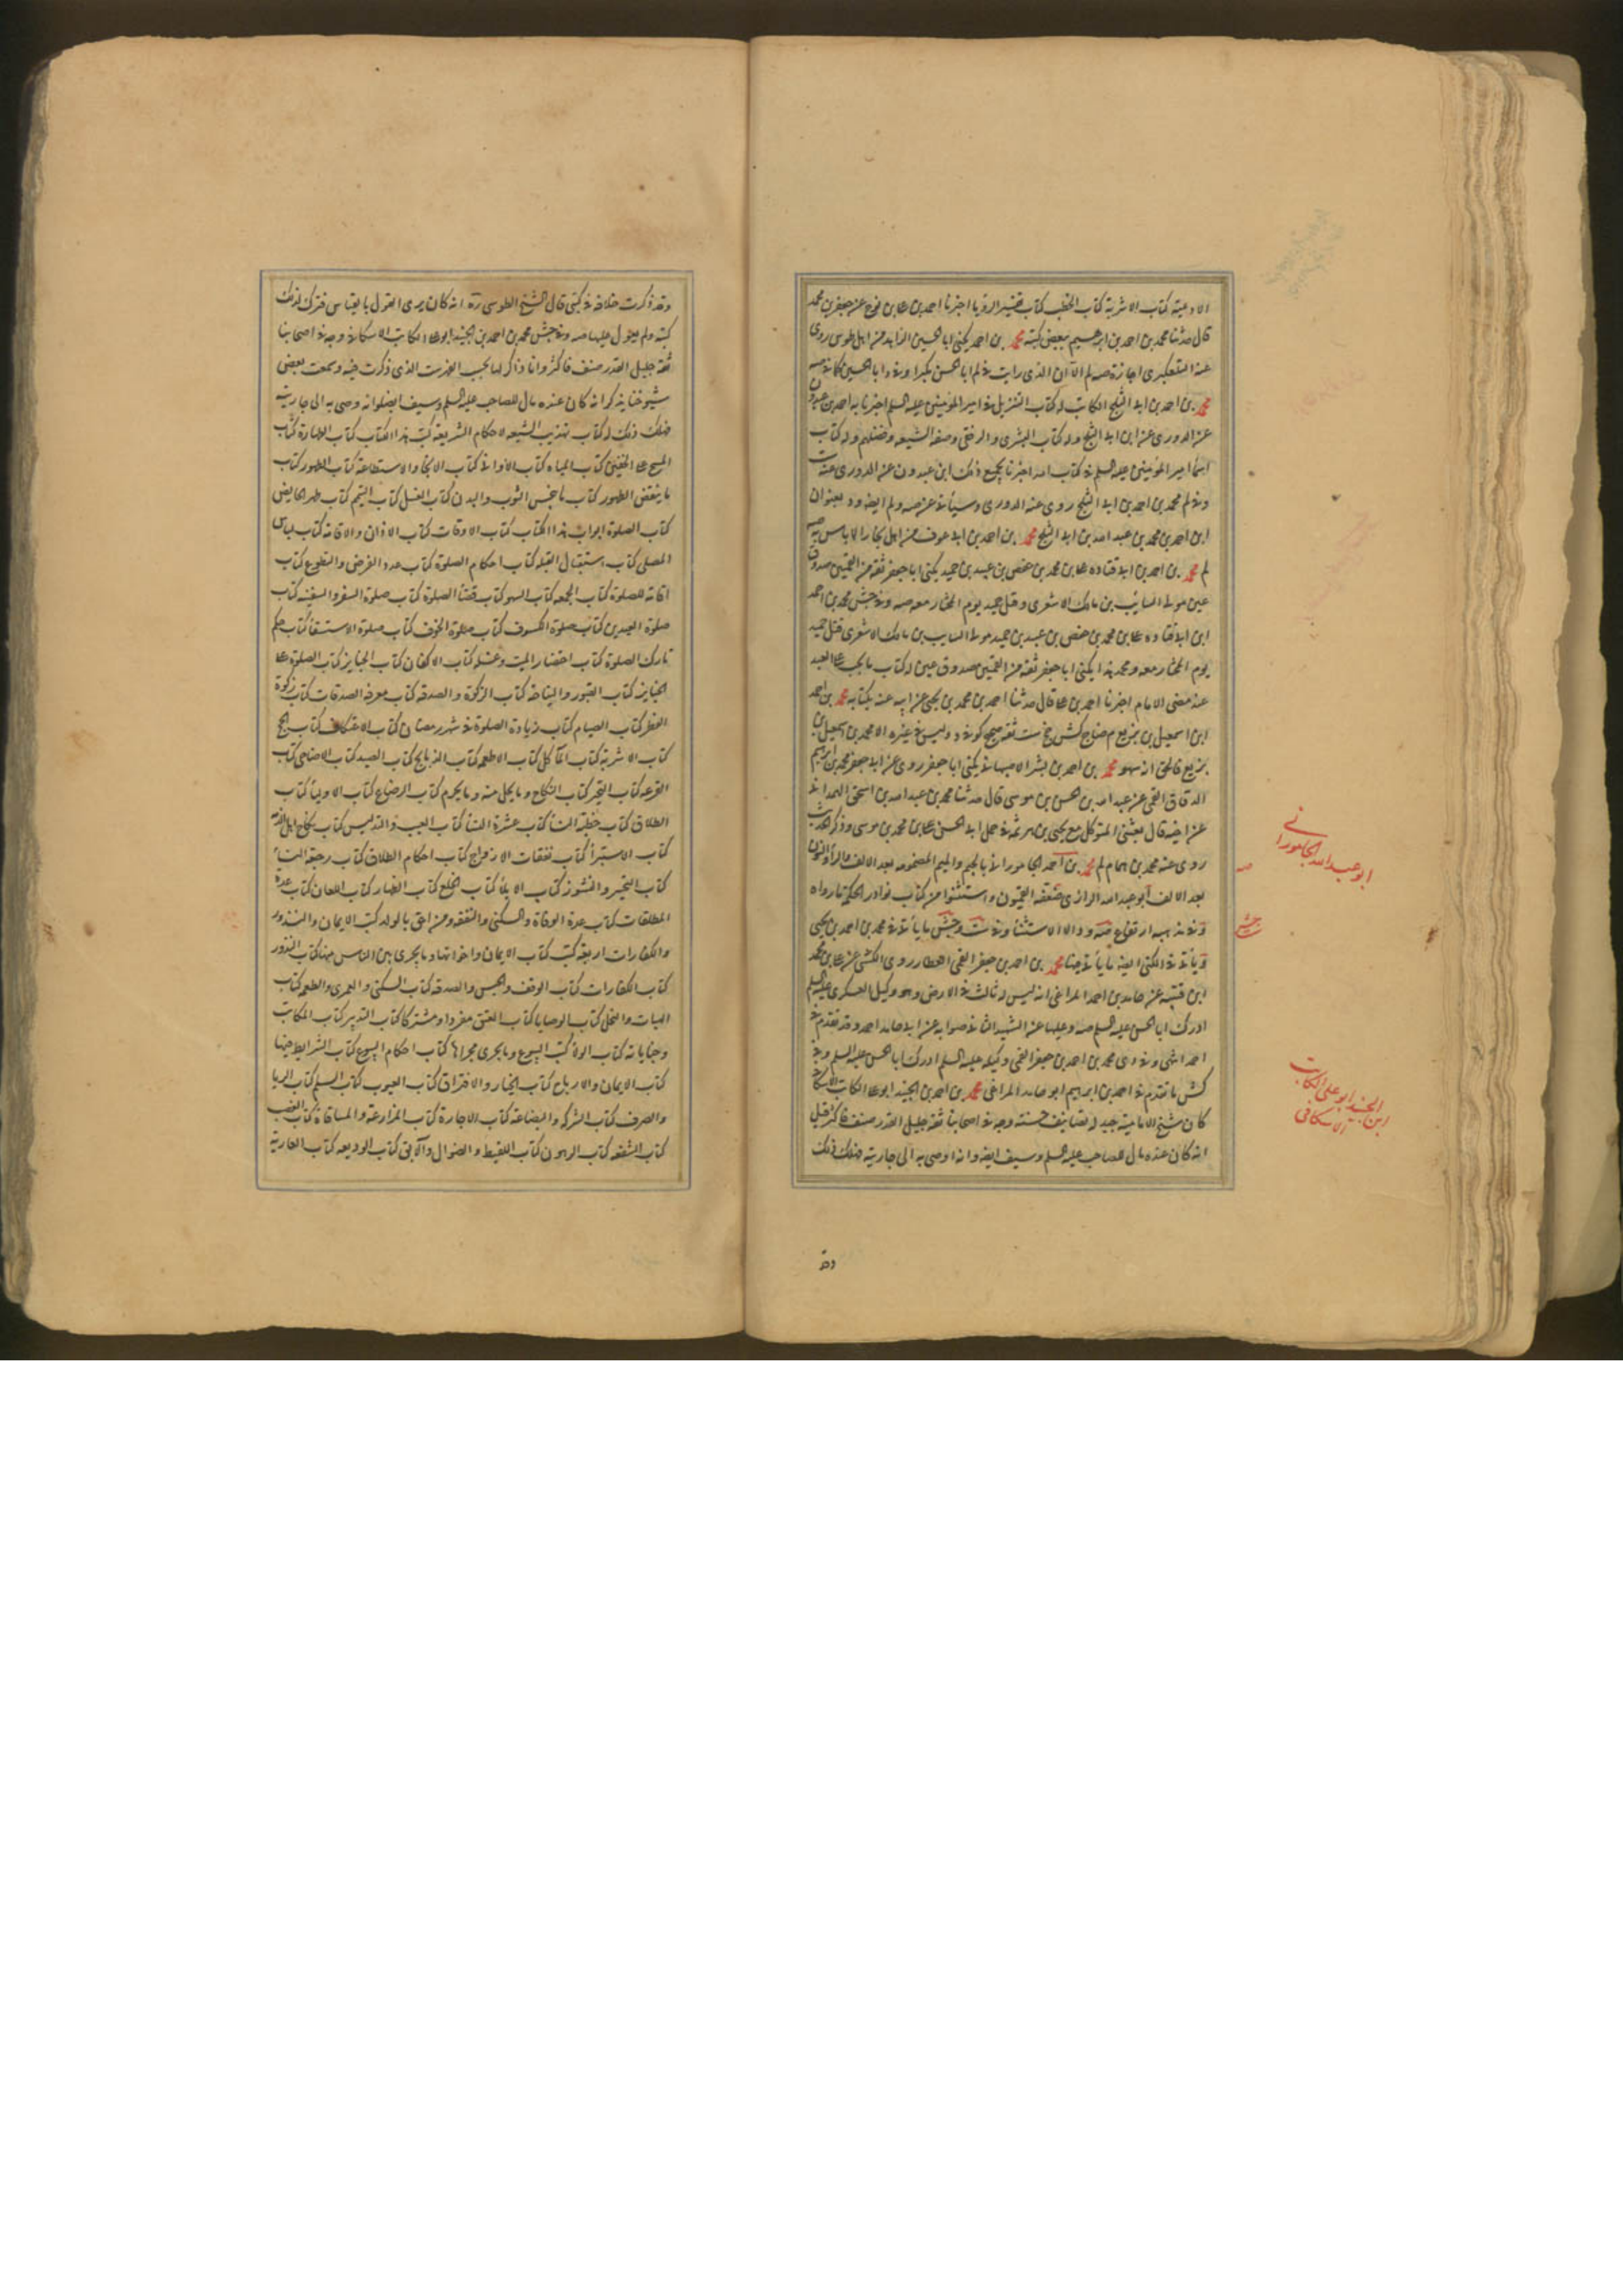 الاوعية كتاب الاشربة كتاب الخطب كتاب تفسير الرؤيا اخبرنا احمد بن على بن نوح عن جعفر بن محمد
قال حدثنا محمد بن احمد بن ابرهيم ببعض كتبه محمد بن احمد يكنى ابا الحسين الزاهد من اهل طوس روى
عنه التلعكبرى اجازة لم الا ان الذى رايت فى لم ابا الحسن مكبرا
محمد بن احمد بن ابى الثلج الكاتب له كتاب التنزيل فى امير المؤمنين عليه السلم اخبرنا به احمد بن عبدون
عن الدورى عن ابن ابى الثلج وله كتاب البشرى والزلفى وصفة الشيعه وفضلهم وله كتاب
اسماء امير المؤمنين عليه السلم فى كتاب الله اخبرنا بجميع ذلك ابن عبدون عن الدورى عنه ست
وفى لم محمد بن احمد بن ابى الثلج روى عنه الدورى وسيأتى عن صه ولم ايضا ود بعنوان
ابن احمد بن محمد بن عبد الله بن ابى الثلج محمد بن احمد بن ابى عوف من اهل بخارا لا باس به
لم محمد بن احمد بن ابى قتاده على بن محمد بن حفص بن عبيد بن حميد يكنى ابا جعفر ثقة من القميين صدوق
عين مولى السايب بن مالك الاشعرى وقتل حميد يوم المختار معه صه وفى جش محمد بن احمد
ابن ابى قتاده على بن محمد بن حفص بن عبيد بن حميد مولى السايب بن مالك الاشعرى قتل حميد
يوم المختار معه ومحمد هذا يكنى ابا جعفر ثقة من القميين صدوق عين له كتاب ما يجب على العبد
عند مضى الامام اخبرنا احمد بن على قال حدثنا احمد بن محمد بن يحيى عن ابيه عنه بكتابه محمد بن احمد
ابن اسمعيل بن بزيع م ضا ج كش جخ ست ثقة صحيح كوفى د وليس فى غيره الا محمد بن اسمعيل بن
بزيع فالحق انه سهو محمد بن احمد بن بشر الاصبهانى يكنى ابا جعفر روى عن ابى جعفر محمد بن ابرهيم
الدقاق القمى عن عبد الله بن الحسن بن موسى قال حدثنا محمد بن عبد الله بن اسحق الهمدانى
عن ابيه قال بعثنى المتوكل مع يحيى بن هرثمة فى حمل ابى الحسن على بن محمد بن موسى وذكر الحديث
روى عنه محمد بن همام لم محمد بن احمد الجامورانى بالجيم والميم المضمومه بعد الالف والراء والنون
بعد الالف ابو عبد الله الرازى ضعفه القميون واستثنوا من كتاب نوادر الحكمة ما رواه
وفى مذهبه ارتفاع صه ود الا الاستثناء وفى ست وجش ما يأتى فى محمد بن احمد بن يحيى
ويأتى فى الكنى ايضا ما يأتى هنا محمد بن احمد بن جعفر القمى العطار روى الكشى عن على بن محمد
ابن قتيبه عن حامد بن احمد المراغى انه ليس له ثالث فى الارض وهو وكيل العسكرى عليه السلم
ادرك ابا الحسن عليه السلم صه وعليها عن الشهيد الثانى صوابه عن ابى حامد احمد وقد تقدم فى
احمد انتهى وفى دى محمد بن احمد بن جعفر القمى وكيله عليه السلم ادرك ابا الحسن عليه السلم وفى
كش ما تقدم فى احمد بن ابرهيم ابو حامد المراغى محمد بن احمد بن الجنيد ابو على الكاتب الاسكافى
كان شيخ الامامية جيد التصانيف حسنة وجه فى اصحابنا ثقة جليل القدر صنف فاكثر قيل
انه كان عنده مال للصاحب عليه السلم وسيف ايضا وانه اوصى به الى جاريته فهلك ذلك
وقد
ابو عبد الله الجامورانى
ابن الجنيد ابو على الكاتب
الاسكافى
وقد ذكرت خلافه فى كتبى قال الشيخ الطوسى ره انه كان يرى القول بالقياس فترك لذلك
كتبه ولم يعول عليها صه وفى جش محمد بن احمد بن الجنيد ابو على الكاتب الاسكافى وجه فى اصحابنا
ثقة جليل القدر صنف فاكثر وانا ذاكر لها بحسب الفهرست الذى ذكرت فيه وسمعت بعض
شيوخنا يذكر انه كان عنده مال للصاحب عليه السلم وسيف ايضا وانه وصى به الى جاريته
فهلك ذلك له كتاب تهذيب الشيعه لاحكام الشريعه كتب هذا الكتاب كتاب الطهارة كتاب
المسح على الخفين كتاب المياه كتاب الاوانى كتاب الانجاء والاستطابة كتاب الطهور كتاب
ما ينقض الطهور كتاب ما نجس الثوب والبدن كتاب الغسل كتاب التيمم كتاب طهر الحايض
كتاب الصلوة ابواب هذا الكتاب كتاب الاوقات كتاب الاذان والاقامة كتاب لباس
المصلى كتاب استقبال القبله كتاب احكام الصلوة كتاب عدد الفرض والتطوع كتاب
اقامة للصلوة كتاب الجمعه كتاب السهو كتاب قضاء الصلوة كتاب صلوة السفر والسفينه كتاب
صلوة العيدين كتاب صلوة الكسوف كتاب صلوة الخوف كتاب صلوة الاستسقاء كتاب حكم
تارك الصلوة كتاب احتضار الميت وغسله كتاب الاكفان كتاب الجنايز كتاب الصلوة على
الجنايز كتاب القبور والنياحة كتاب الزكوة والصدقه كتاب معرفة الصدقات كتاب زكوة
الفطر كتاب الصيام كتاب زيادة الصلوة فى شهر رمضان كتاب الاعتكاف كتاب الحج
كتاب الاشربة كتاب المآكل كتاب الاطعمه كتاب الذبايح كتاب الصيد كتاب الاضاحى كتاب
القرعه كتاب التحرى كتاب النكاح وما يحل منه وما يحرم كتاب الرضاع كتاب الاولياء كتاب
الطلاق كتاب خطبة النساء كتاب عشرة النساء كتاب العيب والتدليس كتاب نكاح اهل الذمه
كتاب الاستبراء كتاب نفقات الازواج كتاب احكام الطلاق كتاب رجعة النساء
كتاب التخيير والنشوز كتاب الايلاء كتاب الخلع كتاب الظهار كتاب اللعان كتاب عدة
المطلقات كتاب عدة الوفاة والسكنى والنفقه ومن احق بالولد كتب الايمان والنذور
والكفارات اربعة كتب كتاب الايمان واخواتها وما يجرى بين الناس منها كتاب النذور
كتاب الكفارات كتاب الوقف والحبس والصدقه كتاب السكنى والعمرى والطعمه كتاب
الهبات والنحل كتاب الوصايا كتاب العتق مفردا ومشتركا كتاب التدبير كتاب المكاتب
وجناياته كتاب الولاء كتب البيوع وما يجرى مجراها كتاب احكام البيوع كتاب الشرايط فيها
كتاب الايمان والارباح كتاب الخيار والافتراق كتاب العيوب كتاب السلم كتاب الربا
والصرف كتاب الشركه والبضاعة كتاب الاجارة كتاب المزارعة والمساقاة كتاب الغصب
كتاب الشفعه كتاب الرهون كتاب اللقيط والضوال والآبق كتاب الوديعه كتاب العارية